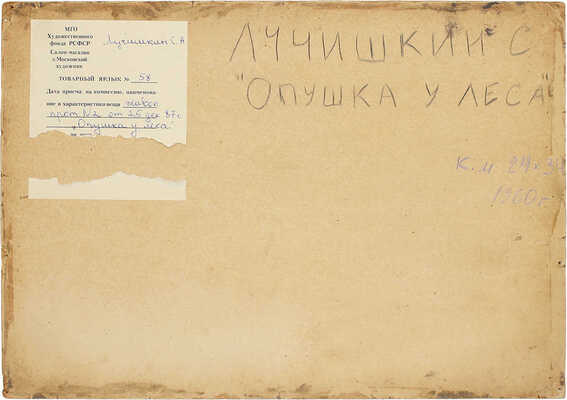 МГО
Художественного
фонда РСФСР
Салон-магазин
«Московский
художник
Лучишкин С. А
ТОВАРНЫЙ ЯРЛЫК № 58
Дата приема на комиссию, наименова-
ние и характеристика вещи
прот N2 от 25 дек 87г.
„Опушка у леса"
ЛУЧИШКИН С
"ОПУШКА У ЛЕСА"
К. м. 24х34
1960 г.